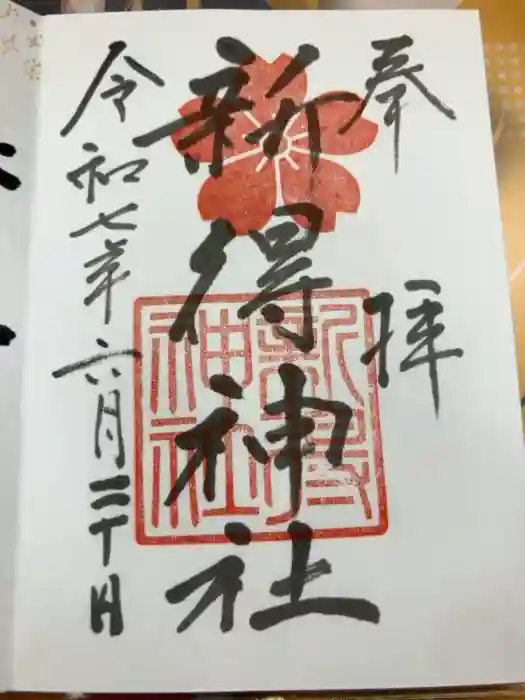 奉拝
新得神社
新得
神社
令和七年六月三十日